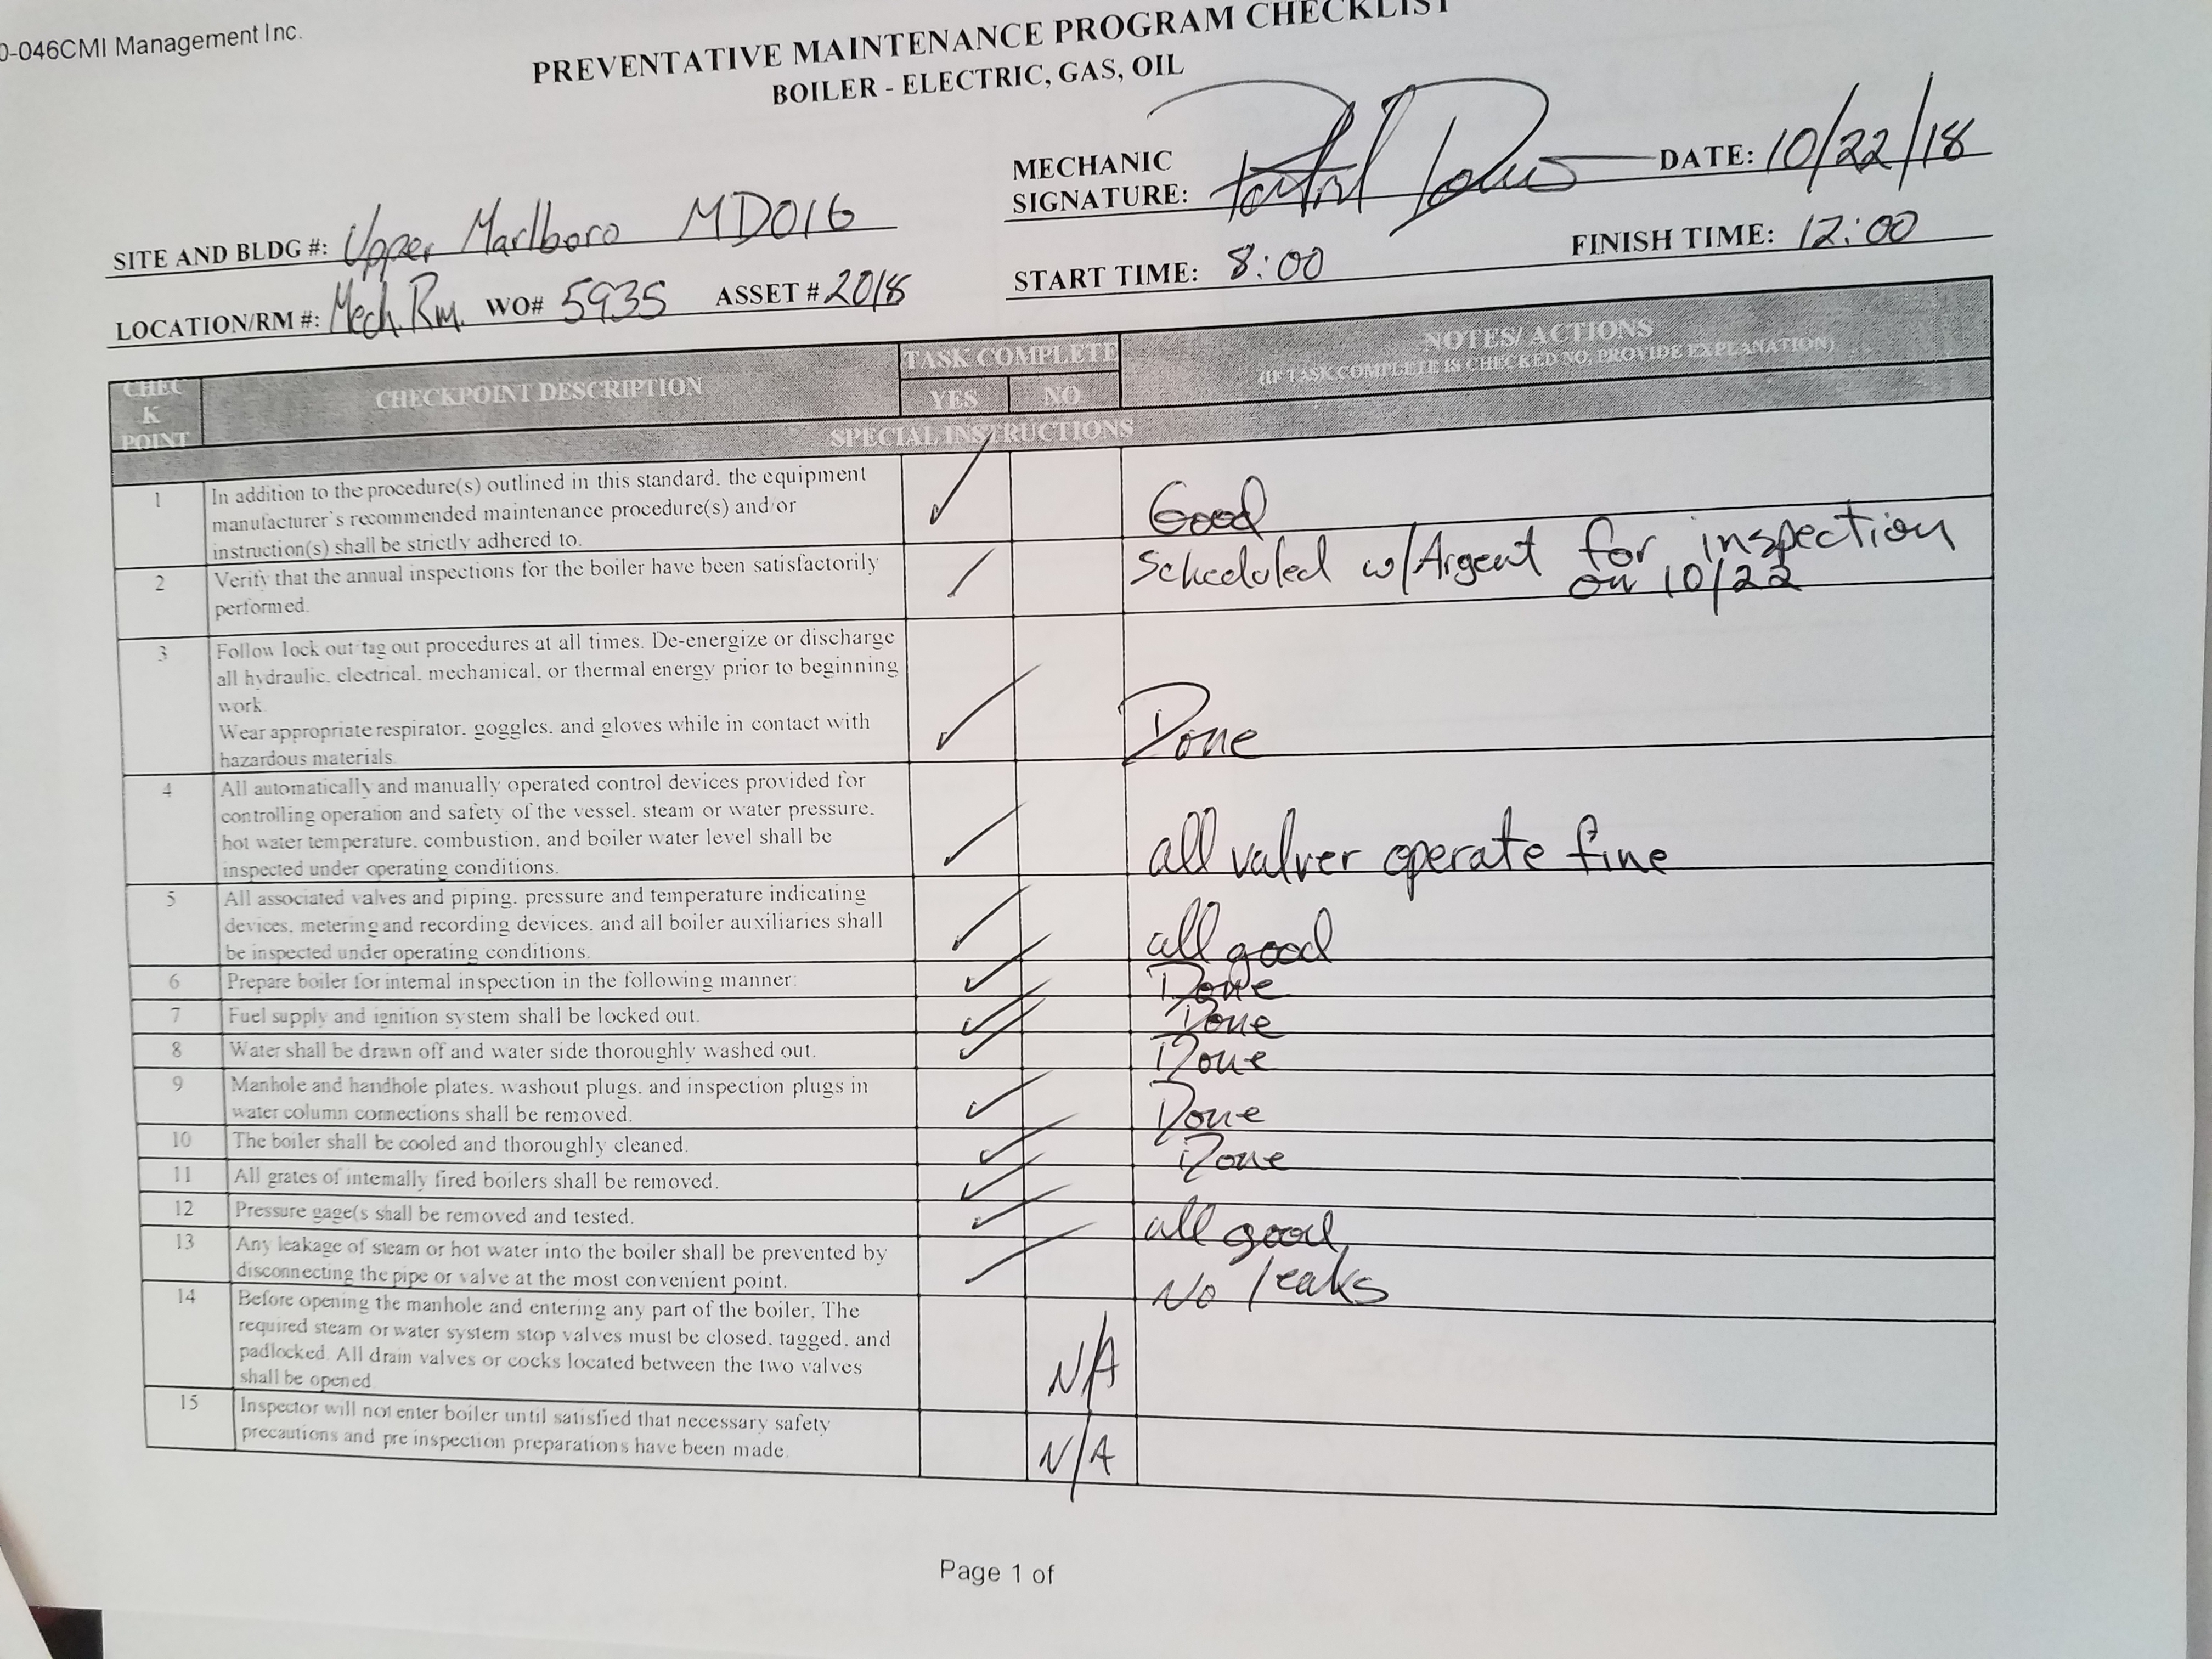 0-046CMI Management Inc.
PREVENTATIVE MAINTENANCE PROGRAM CHECKLIST
BOILER - ELECTRIC, GAS, OIL
MECHANIC
SIGNATURE: DATE: 10/22/18
SITE AND BLDG #: Upper Marlboro MD016
START TIME: 8:00 FINISH TIME: 12:00
LOCATION/RM #: Mech. Rm. WO# 5935 ASSET # 2018
CHEC
K
POINT
CHECKPOINT DESCRIPTION
TASK COMPLETE
YES NO
NOTES/ ACTIONS
(IF TASK COMPLETE IS CHECKED NO, PROVIDE EXPLANATION)
SPECIAL INSTRUCTIONS
1 In addition to the procedure(s) outlined in this standard, the equipment
manufacturer's recommended maintenance procedure(s) and/or
instruction(s) shall be strictly adhered to.
✓ Good
2 Verify that the annual inspections for the boiler have been satisfactorily
performed.
✓ Scheduled w/Argent for inspection
on 10/22
3 Follow lock out/tag out procedures at all times. De-energize or discharge
all hydraulic, electrical, mechanical, or thermal energy prior to beginning
work
Wear appropriate respirator, goggles, and gloves while in contact with
hazardous materials.
✓ Done
4 All automatically and manually operated control devices provided for
controlling operation and safety of the vessel, steam or water pressure,
hot water temperature, combustion, and boiler water level shall be
inspected under operating conditions.
✓ all valver operate fine
5 All associated valves and piping, pressure and temperature indicating
devices, metering and recording devices, and all boiler auxiliaries shall
be inspected under operating conditions.
✓ all good
6 Prepare boiler for internal inspection in the following manner: ✓ Done
7 Fuel supply and ignition system shall be locked out. ✓ Done
8 Water shall be drawn off and water side thoroughly washed out. ✓ Done
9 Manhole and handhole plates, washout plugs, and inspection plugs in
water column connections shall be removed.
✓ Done
10 The boiler shall be cooled and thoroughly cleaned. ✓ Done
11 All grates of internally fired boilers shall be removed. ✓
12 Pressure gage(s shall be removed and tested. ✓ all good
13 Any leakage of steam or hot water into the boiler shall be prevented by
disconnecting the pipe or valve at the most convenient point.
✓ No leaks
14 Before opening the manhole and entering any part of the boiler, The
required steam or water system stop valves must be closed, tagged, and
padlocked. All drain valves or cocks located between the two valves
shall be opened
N/A
15 Inspector will not enter boiler until satisfied that necessary safety
precautions and pre inspection preparations have been made.
N/A
Page 1 of